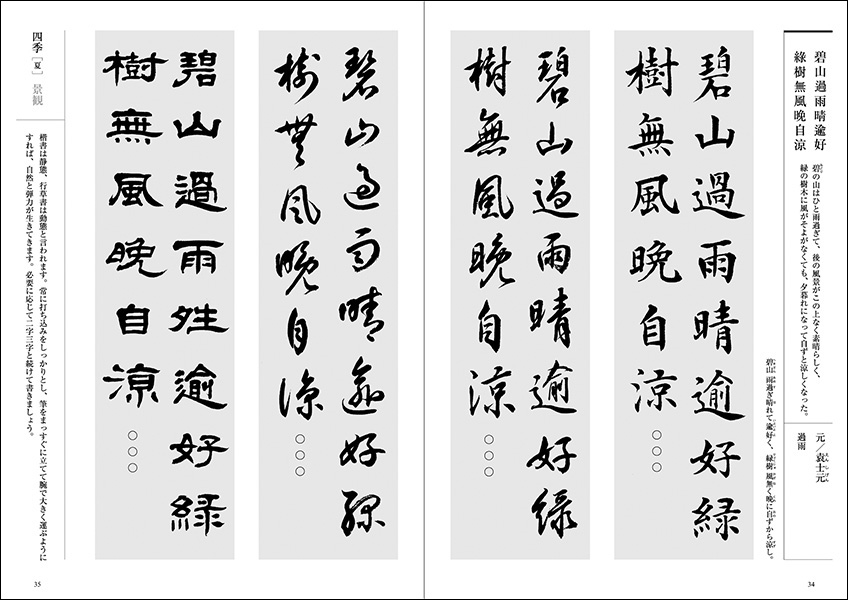 碧山過雨晴逾好
綠樹無風晩自涼
碧の山はひと雨過ぎて、後の風景がこの上なく素晴らしく、
緑の樹木に風がそよがなくても、夕暮れになって自ずと涼しくなった。
元/袁士元
過雨
碧山 雨過ぎ晴れて逾好く、緑樹 風無く晩に自ずから涼し。
碧山過雨晴逾好緑
樹無風晩自涼○○○
碧山過雨晴逾好緑
樹無風晩自涼○○○
34
碧山過雨晴逾好緑
樹無風晩自涼○○○
碧山過雨夝逾好緑
樹無風晩自涼○○○
四季[夏] 景観
楷書は静態、行草書は動態と言われます。常に打ち込みをしっかりとし、筆をまっすぐに立てて腕で大きく運ぶように
すれば、自然と弾力が生きてきます。必要に応じて二字三字と続けて書きましょう。
35